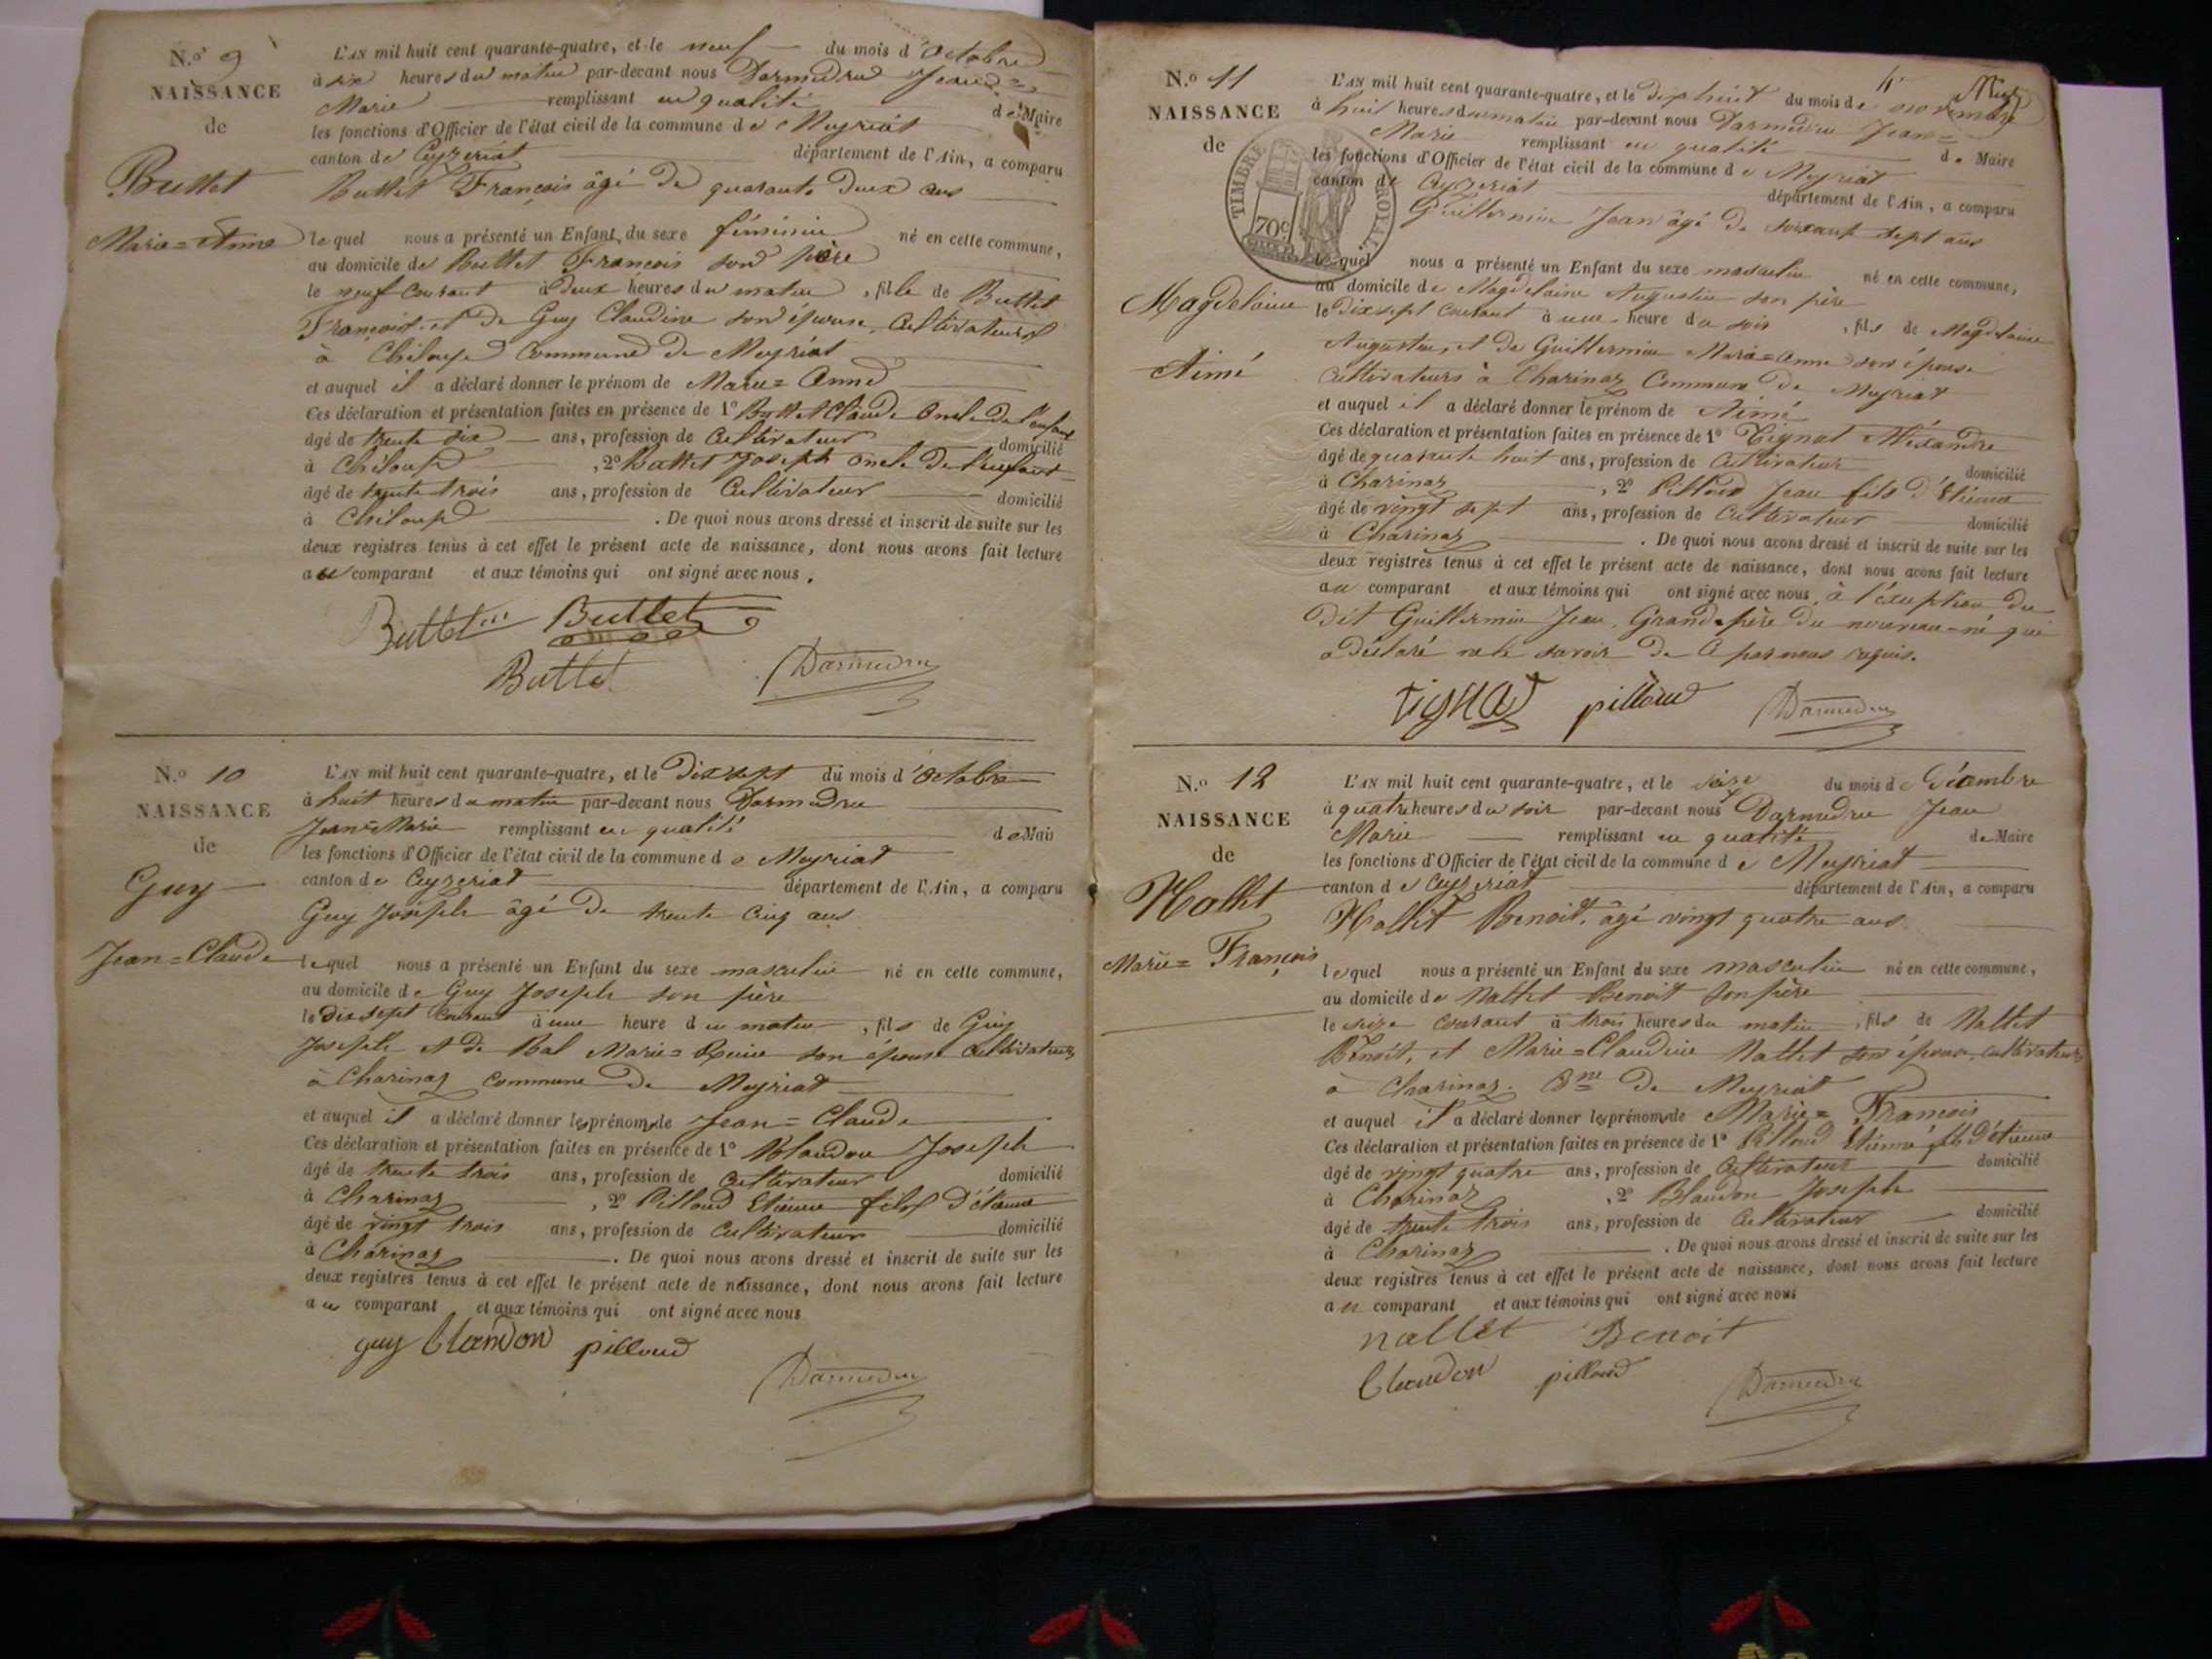 N.º 9
NAISSANCE
de
Buttet
Marie=Anne
L'AN mil huit cent quarante-quatre, et le neuf du mois d'Octobre
à six heures du matin par-devant nous Darmedru Jean=
Marie remplissant en qualité de Maire
les fonctions d'Officier de l'état civil de la commune de Meyriat
canton de Ceyzeriat département de l'Ain, a comparu
Buttet François âgé de quarante deux ans
lequel nous a présenté un Enfant du sexe féminin né en cette commune,
au domicile de Buttet François son père
le neuf courant à deux heures du matin, fille de Buttet
François et de Guy Claudine son épouse, Cultivateurs
à Chiloup Commune de Meyriat
et auquel il a déclaré donner le prénom de Marie=Anne
Ces déclaration et présentation faites en présence de 1º Buttet Claude Oncle de l'enfant
âgé de trente six ans, profession de Cultivateur domicilié
à Chiloup, 2º Buttet Joseph Oncle de l'enfant
âgé de trente trois ans, profession de Cultivateur domicilié
à Chiloup. De quoi nous avons dressé et inscrit de suite sur les
deux registres tenus à cet effet le présent acte de naissance, dont nous avons fait lecture
au comparant et aux témoins qui ont signé avec nous.
Buttet Buttet
Buttet Darmedru
N.º 10
NAISSANCE
de
Guy
Jean=Claude
L'AN mil huit cent quarante-quatre, et le Dix sept du mois d'Octobre
à huit heures du matin par-devant nous Darmedru
Jean=Marie remplissant en qualité de Mair
les fonctions d'Officier de l'état civil de la commune de Meyriat
canton de Ceyzeriat département de l'Ain, a comparu
Guy Joseph âgé de trente cinq ans
lequel nous a présenté un Enfant du sexe masculin né en cette commune,
au domicile de Guy Joseph son père
le Dix sept courant à une heure du matin, fils de Guy
Joseph et de Bal Marie= son épouse Cultivateurs
à Charinaz commune de Meyriat
et auquel il a déclaré donner les prénoms de Jean=Claude
Ces déclaration et présentation faites en présence de 1º Blandon Joseph
âgé de trente trois ans, profession de Cultivateur domicilié
à Charinaz, 2º Pilloud Etienne fils d'étienne
âgé de vingt trois ans, profession de Cultivateur domicilié
à Charinaz. De quoi nous avons dressé et inscrit de suite sur les
deux registres tenus à cet effet le présent acte de naissance, dont nous avons fait lecture
au comparant et aux témoins qui ont signé avec nous
guy blandon pilloud
Darmedru
N.º 11
NAISSANCE
de
Magdelaine
Aimé
TIMBRE ROYAL
70c
L'AN mil huit cent quarante-quatre, et le dix huit du mois de novembre
à huit heures du matin par-devant nous Darmedru Jean=
Marie remplissant en qualité de Maire
les fonctions d'Officier de l'état civil de la commune de Meyriat
canton de Ceyzeriat département de l'Ain, a comparu
Guillermin Jean âgé de soixante sept ans
lequel nous a présenté un Enfant du sexe masculin né en cette commune,
au domicile de Magdelaine Augustin son père
le Dix sept courant à une heure du soir, fils de Magdelaine
Augustin, et de Guillermin Marie=Anne son épouse
Cultivateurs à Charinaz Commune de Meyriat
et auquel il a déclaré donner le prénom de Aimé
Ces déclaration et présentation faites en présence de 1º Tignat Aléxandre
âgé de quarante huit ans, profession de Cultivateur domicilié
à Charinaz, 2º Pilloud Jean fils d'Etienne
âgé de vingt sept ans, profession de Cultivateur domicilié
à Charinaz. De quoi nous avons dressé et inscrit de suite sur les
deux registres tenus à cet effet le présent acte de naissance, dont nous avons fait lecture
au comparant et aux témoins qui ont signé avec nous, à l'éxception du
dit Guillermin Jean, Grand-père du nouveau-né qui
a déclaré ne le savoir de ce par nous requis.
tignat pilloud Darmedru
N.º 12
NAISSANCE
de
Nallet
Marie=François
L'AN mil huit cent quarante-quatre, et le seize du mois de Décembre
à quatre heures du soir par-devant nous Darmedru Jean
Marie remplissant en qualité de Maire
les fonctions d'Officier de l'état civil de la commune de Meyriat
canton de Ceyzeriat département de l'Ain, a comparu
Nallet Benoit, âgé vingt quatre ans
lequel nous a présenté un Enfant du sexe masculin né en cette commune,
au domicile de Nallet Benoit son père
le seize courant à trois heures du matin, fils de Nallet
Benoit, et Marie=Claudine Nallet son épouse, cultivateurs
à Charinaz. Cne de Meyriat
et auquel il a déclaré donner les prénoms de Marie=François
Ces déclaration et présentation faites en présence de 1º Pilloud Etienne fils d'étienne
âgé de vingt quatre ans, profession de Cultivateur domicilié
à Charinaz, 2º Blandon Joseph
âgé de trente trois ans, profession de Cultivateur domicilié
à Charinaz. De quoi nous avons dressé et inscrit de suite sur les
deux registres tenus à cet effet le présent acte de naissance, dont nous avons fait lecture
au comparant et aux témoins qui ont signé avec nous
nallet Benoit
blandon pilloud Darmedru